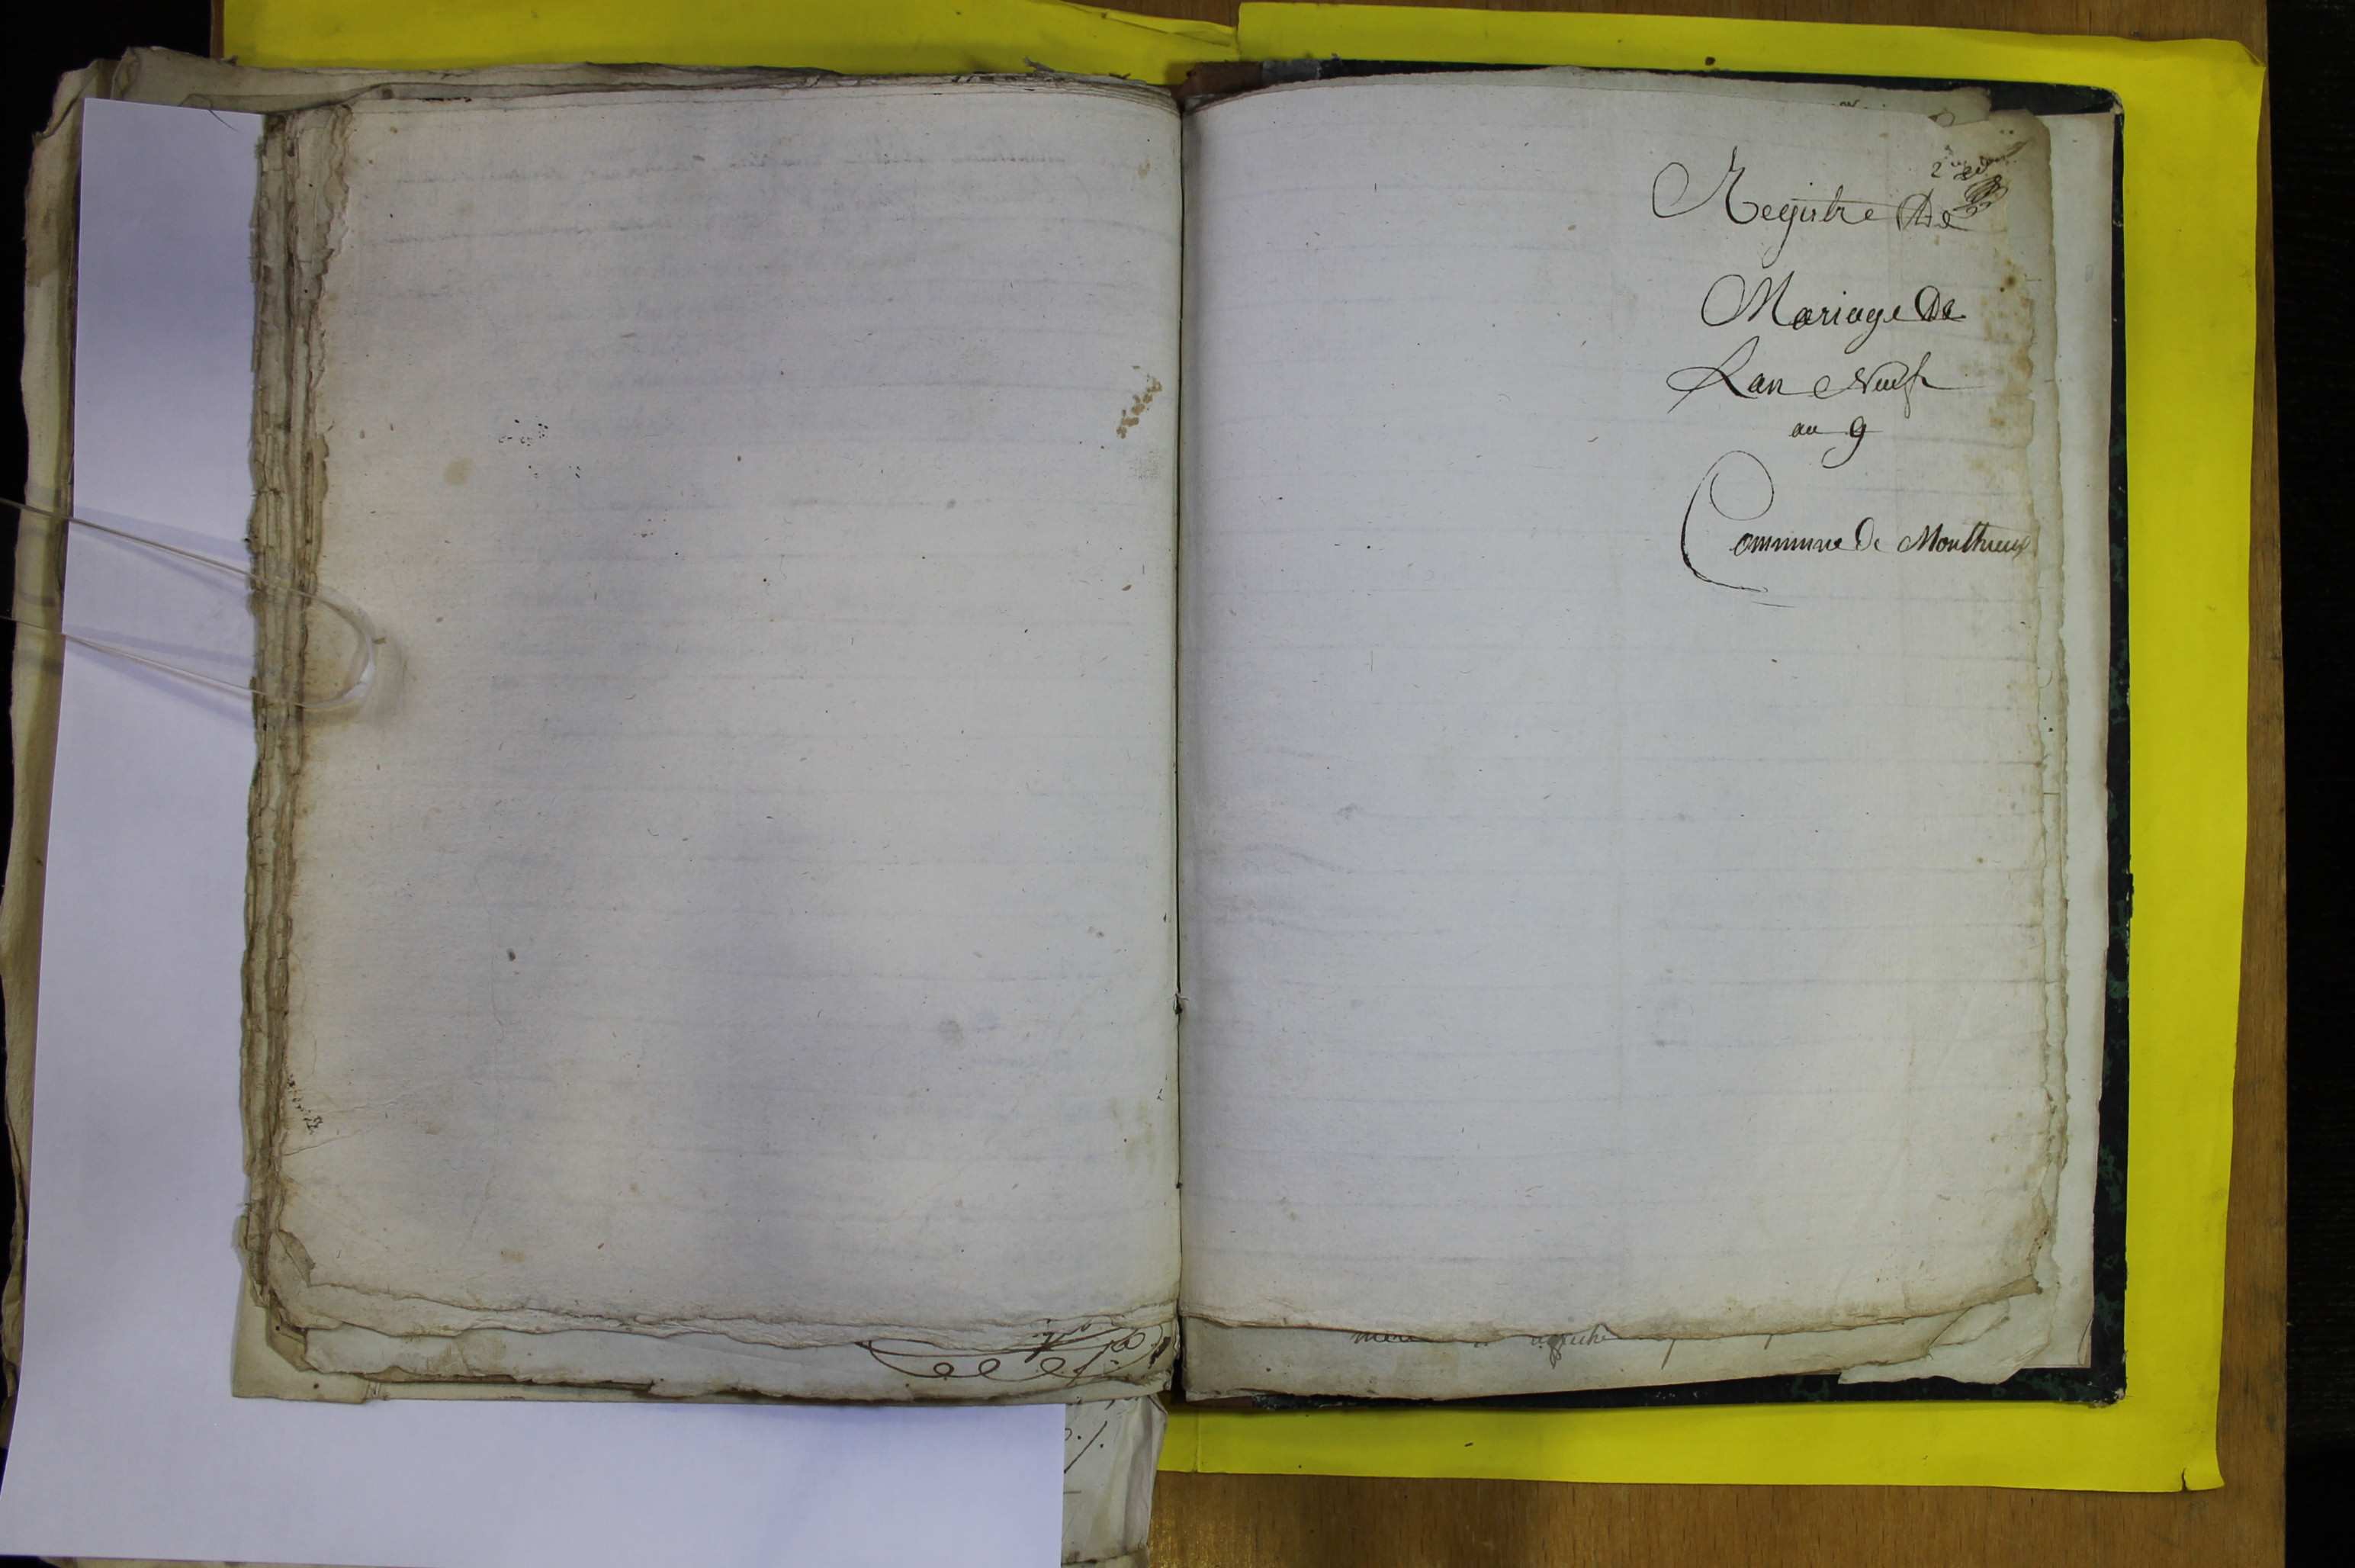 Registre De
Mariage De
Lan Neuf
an 9
Commune de Monthieux